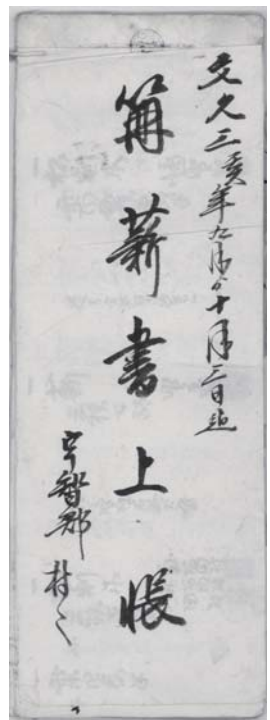 文久三亥年九月ゟ十月三日迄
篝薪書上帳
宇智郡村々